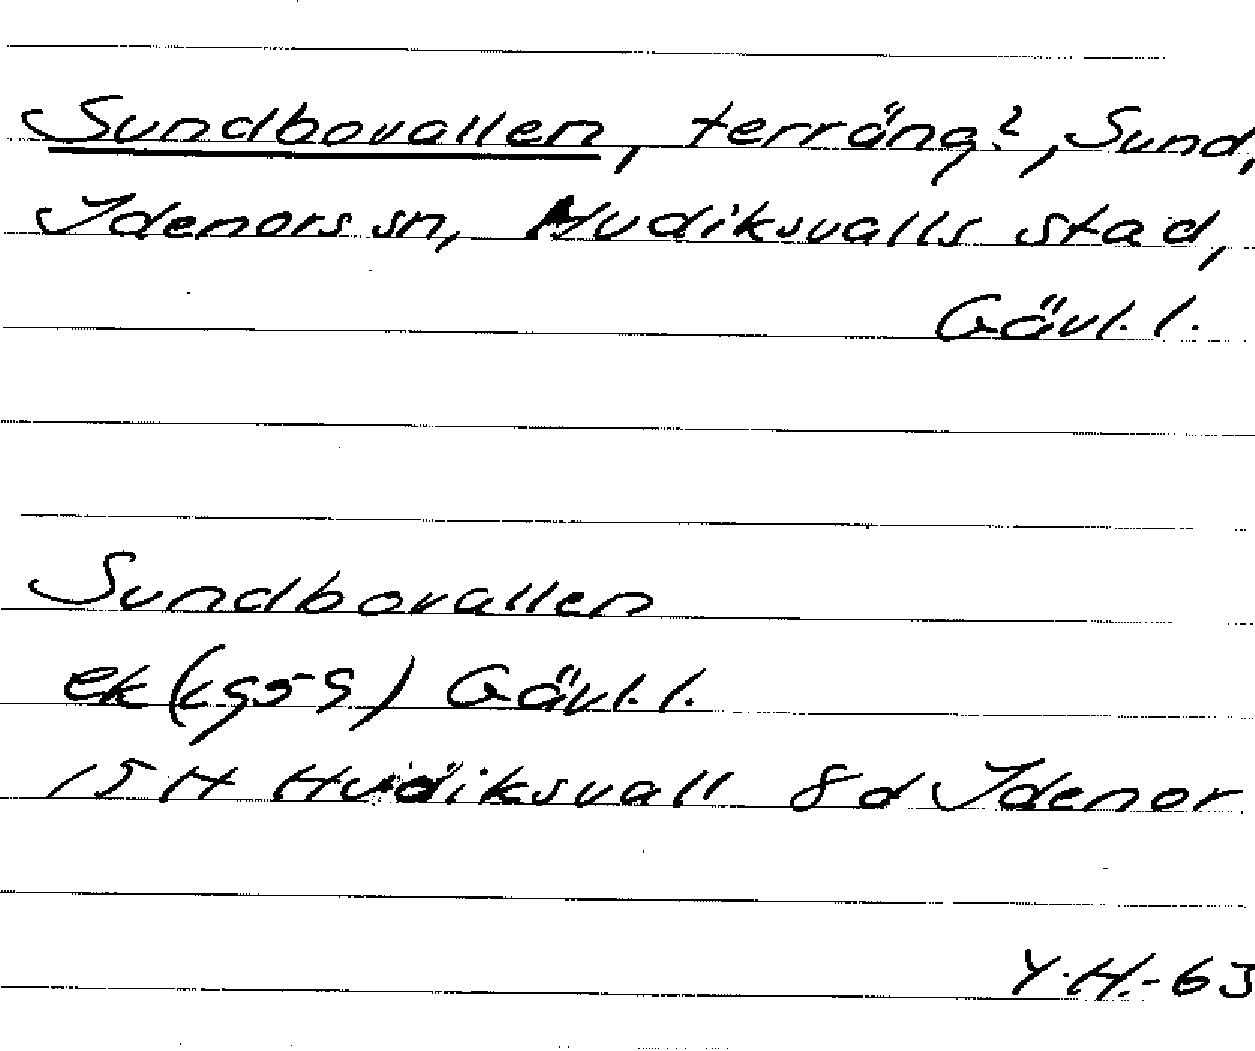 Sundbovallen, terräng?, Sund,
Idenors sn, Hudiksvalls stad,
Gävl. l.
Sundbovallen
ek (1959) Gävl. l.
15 H Hudiksvall 8d Idenor
Y.H.-63